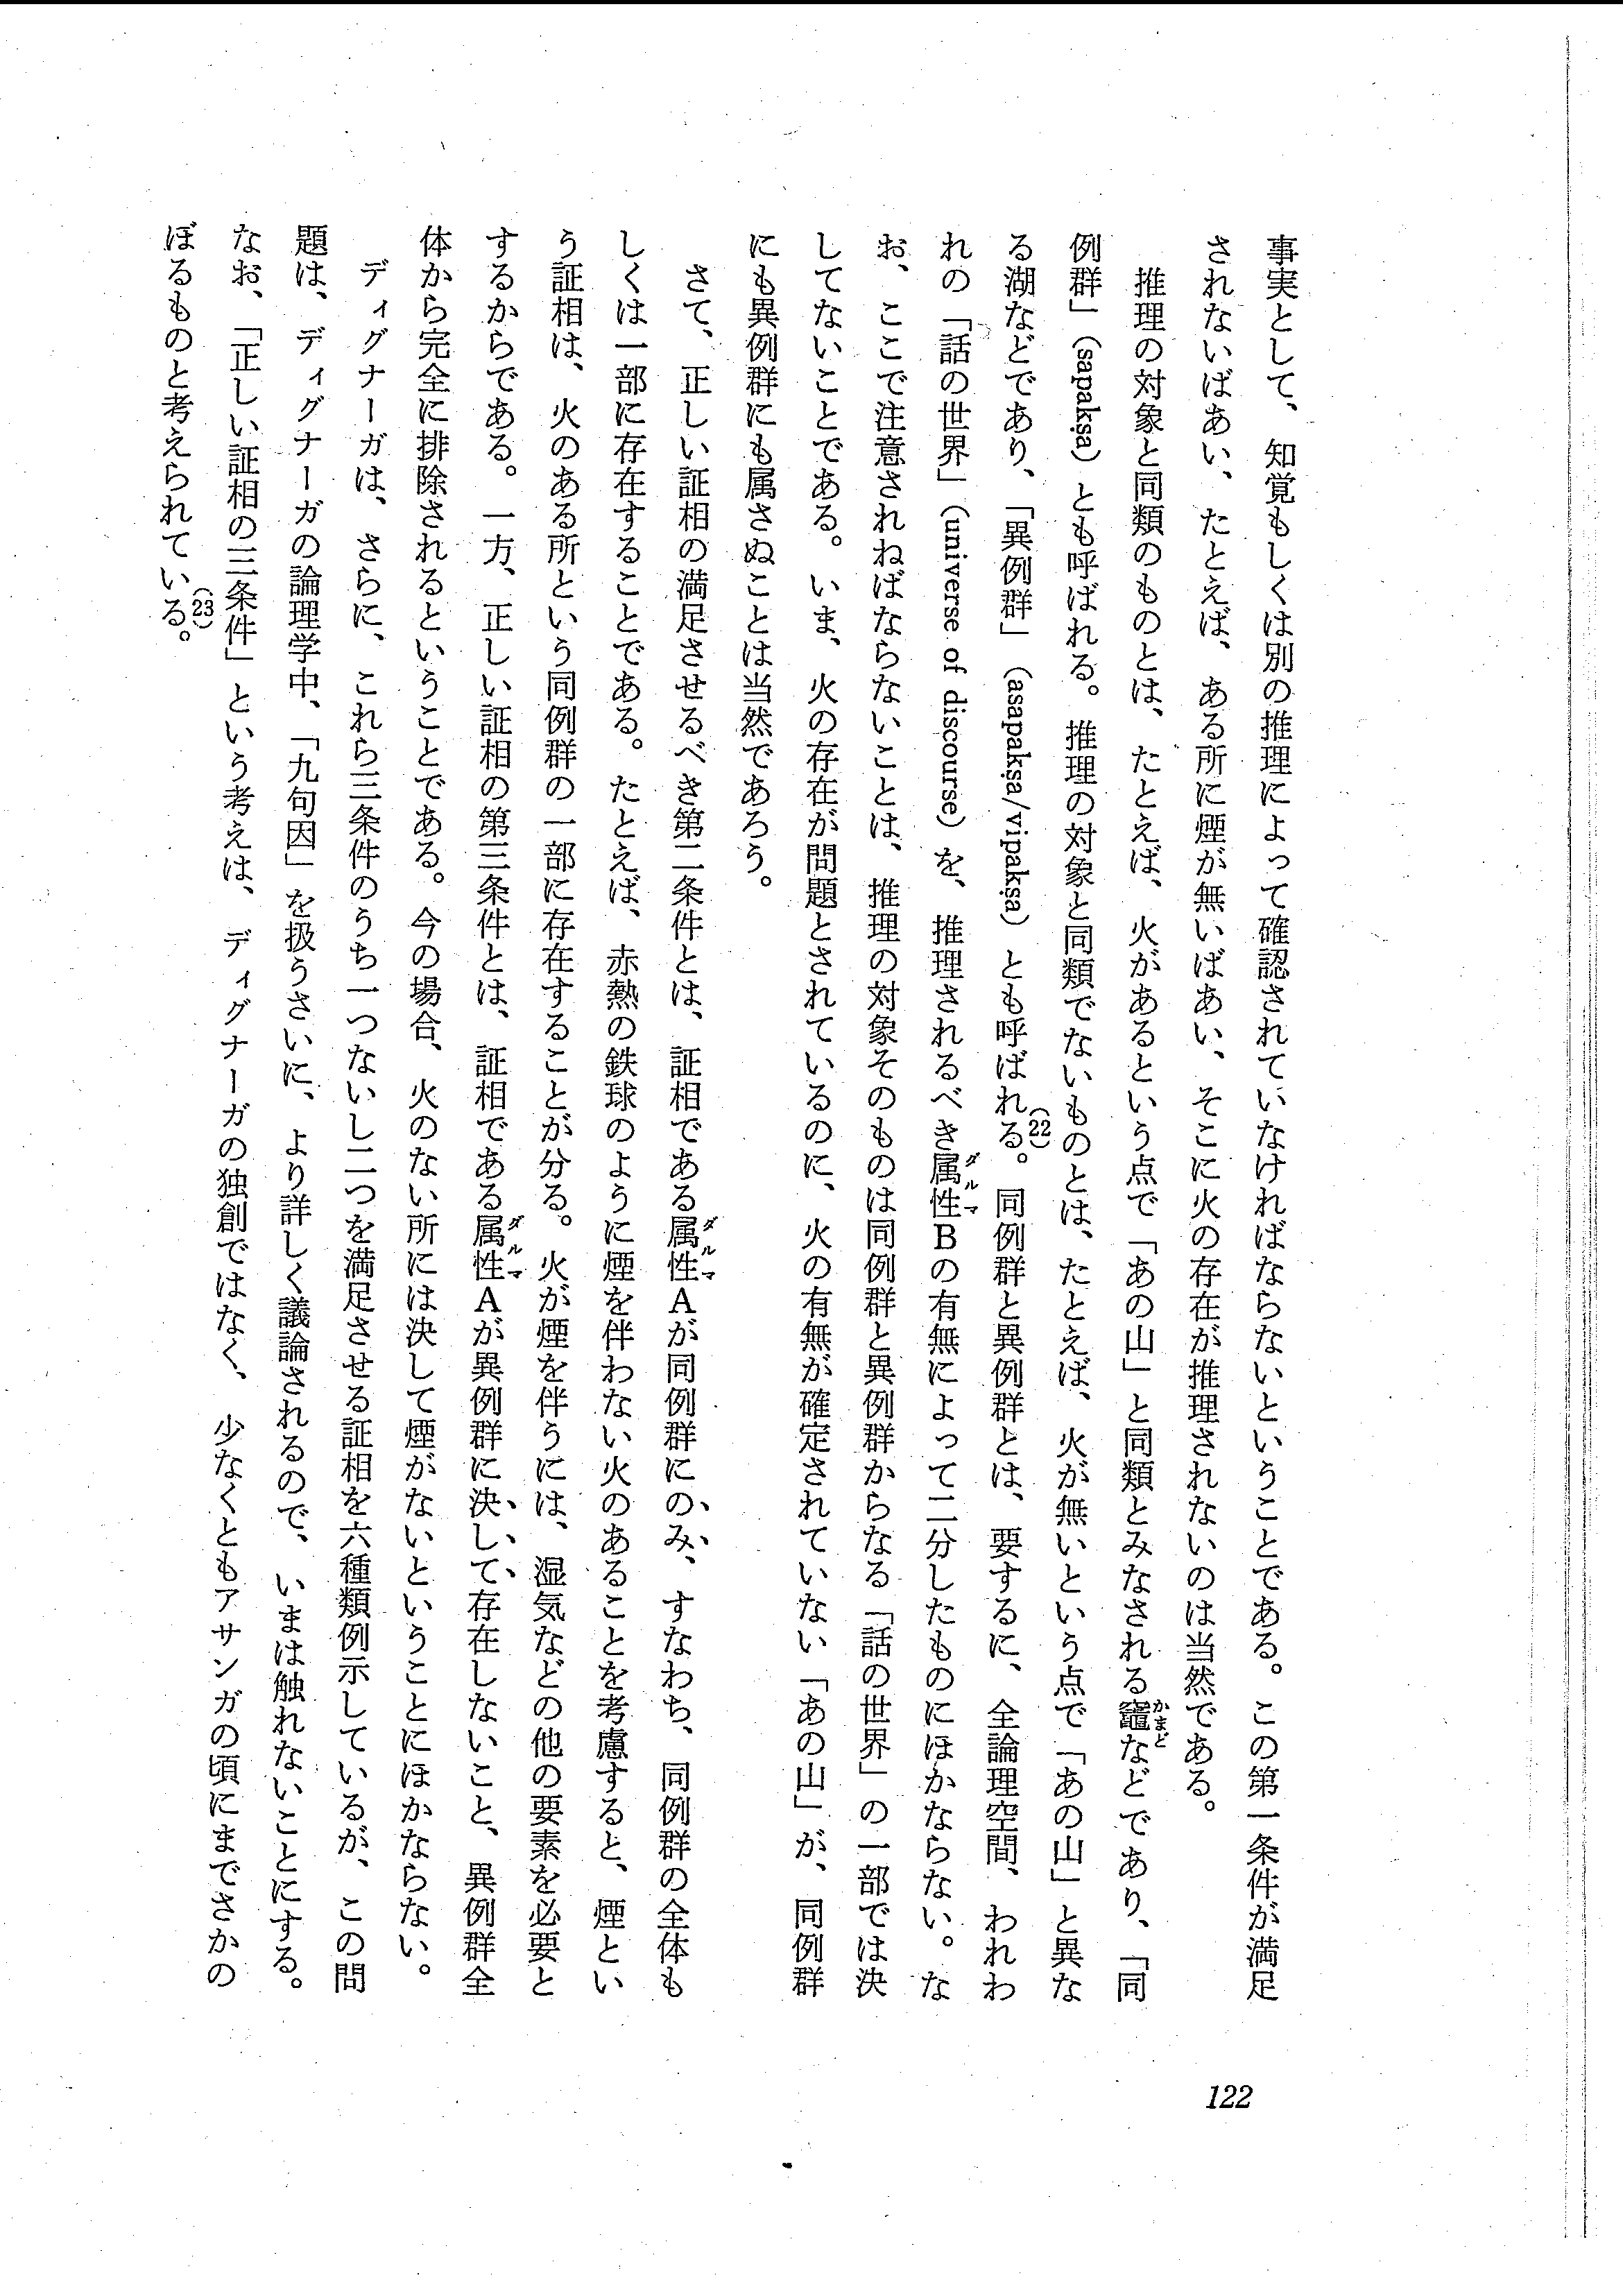 事実として、知覚もしくは別の推理によって確認されていなければならないということである。この第一条件が満足
されないばあい、たとえば、ある所に煙が無いばあい、そこに火の存在が推理されないのは当然である。
推理の対象と同類のものとは、たとえば、火があるという点で「あの山」と同類とみなされる竈かまどなどであり、「同
例群」（sapakṣa）とも呼ばれる。推理の対象と同類でないものとは、たとえば、火が無いという点で「あの山」と異な
る湖などであり、「異例群」（asapakṣa/vipakṣa）とも呼ばれる。（22）同例群と異例群とは、要するに、全論理空間、われわ
れの「話の世界」（universe of discourse）を、推理されるべき属性ダルマBの有無によって二分したものにほかならない。な
お、ここで注意されねばならないことは、推理の対象そのものは同例群と異例群からなる「話の世界」の一部では決
してないことである。いま、火の存在が問題とされているのに、火の有無が確定されていない「あの山」が、同例群
にも異例群にも属さぬことは当然であろう。
さて、正しい証相の満足させるべき第二条件とは、証相である属性ダルマAが同例群にのみ、すなわち、同例群の全体も
しくは一部に存在することである。たとえば、赤熱の鉄球のように煙を伴わない火のあることを考慮すると、煙とい
う証相は、火のある所という同例群の一部に存在することが分る。火が煙を伴うには、湿気などの他の要素を必要と
するからである。一方、正しい証相の第三条件とは、証相である属性ダルマAが異例群に決して存在しないこと、異例群全
体から完全に排除されるということである。今の場合、火のない所には決して煙がないということにほかならない。
ディグナーガは、さらに、これら三条件のうち一つないし二つを満足させる証相を六種類例示しているが、この問
題は、ディグナーガの論理学中、「九句因」を扱うさいに、より詳しく議論されるので、いまは触れないことにする。
なお、「正しい証相の三条件」という考えは、ディグナーガの独創ではなく、少なくともアサンガの頃にまでさかの
ぼるものと考えられている。（23）
122